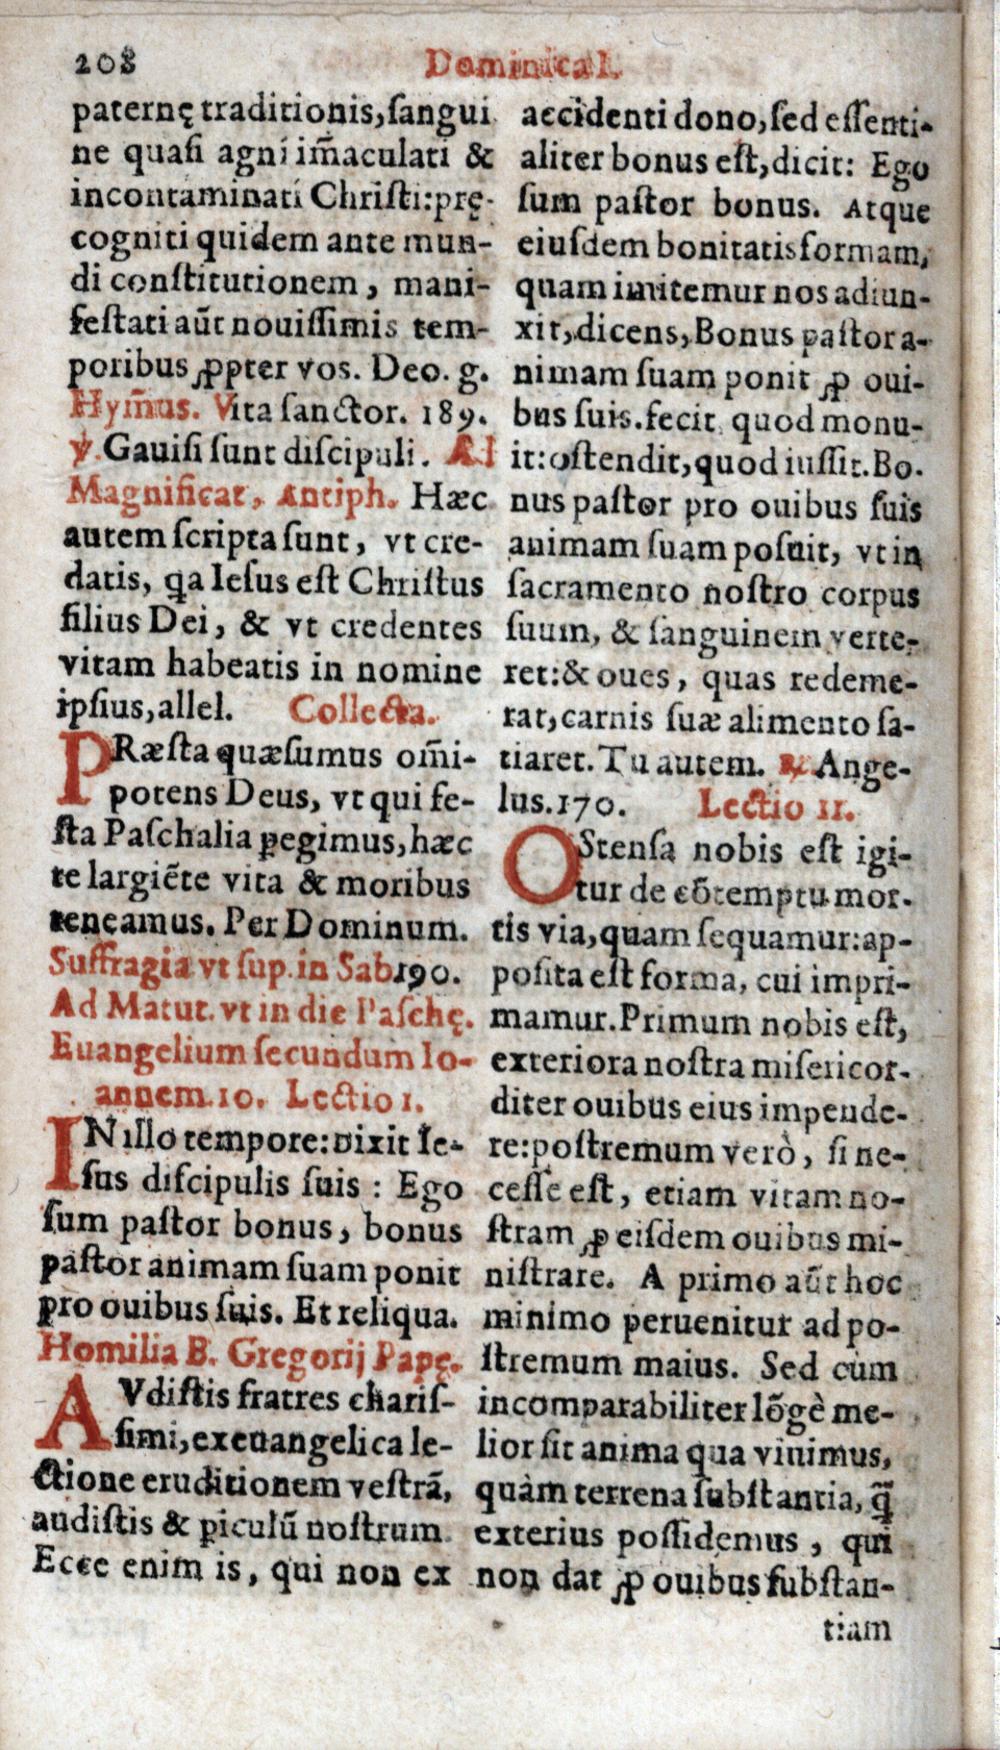 208
Dominica I.
paternę traditionis, ſangui
ne quaſi agni im̃aculati &
incontaminati Chriſti: prę-
cogniti quidem ante mun-
di conſtitutionem, mani-
feſtati aũt nouiſſimis tem-
poribus ꝓpter vos. Deo. g.
Hym̃us. Vita ſanctor. 189.
℣. Gauiſi ſunt diſcipuli. Ad
Magnificat, Antiph. Hæc
autem ſcripta ſunt, vt cre-
datis, ꝗa Ieſus eſt Chriſtus
filius Dei, & vt credentes
vitam habeatis in nomine
ipſius, allel. Collecta.
PRæſta quæſumus om̃i-
potens Deus, vt qui fe-
ſta Paſchalia ꝑegimus, hæc
te largiẽte vita & moribus
teneamus. Per Dominum.
Suffragia vt ſup. in Sab. 190.
Ad Matut. vt in die Paſchę.
Euangelium ſecundum Io-
annem. 10. Lectio 1.
IN illo tempore: dixit Ie-
ſus diſcipulis ſuis: Ego
ſum paſtor bonus, bonus
paſtor animam ſuam ponit
pro ouibus ſuis. Et reliqua.
Homilia B. Gregorij Papę.
AVdiſtis fratres chariſ-
ſimi, ex euangelica le-
ctione eruditionem veſtrã,
audiſtis & ꝑiculũ noſtrum
Ecce enim is, qui non ex
accidenti dono, ſed eſſenti-
aliter bonus eſt, dicit: Ego
ſum paſtor bonus. Atque
eiuſdem bonitatis formam,
quam imitemur nos adiun-
xit, dicens, Bonus paſtor a-
nimam ſuam ponit ꝓ oui-
bus ſuis. fecit quod monu-
it: oſtendit, quod iuſſit. Bo.
nus paſtor pro ouibus ſuis
animam ſuam poſuit, vt in
ſacramento noſtro corpus
ſuum, & ſanguinem verte-
ret: & oues, quas redeme-
rat, carnis ſuæ alimento ſa-
tiaret. Tu autem. ℟. Ange-
lus. 170. Lectio 11.
OStenſa nobis eſt igi-
tur de cõtemptu mor-
tis via, quam ſequamur: ap-
poſita eſt forma, cui impri-
mamur. Primum nobis eſt,
exteriora noſtra miſericor-
diter ouibus eius impende-
re: poſtremum verò, ſi ne-
ceſſe eſt, etiam vitam no-
ſtram ꝓ eiſdem ouibus mi-
niſtrare. A primo aũt hoc
minimo peruenitur ad po-
ſtremum maius. Sed cum
incomparabiliter lõgè me-
lior ſit anima qua viuimus,
quàm terrena ſubſtantia, q̃
exterius poſſidemus, qui
non dat ꝓ ouibus ſubſtan-
tiam